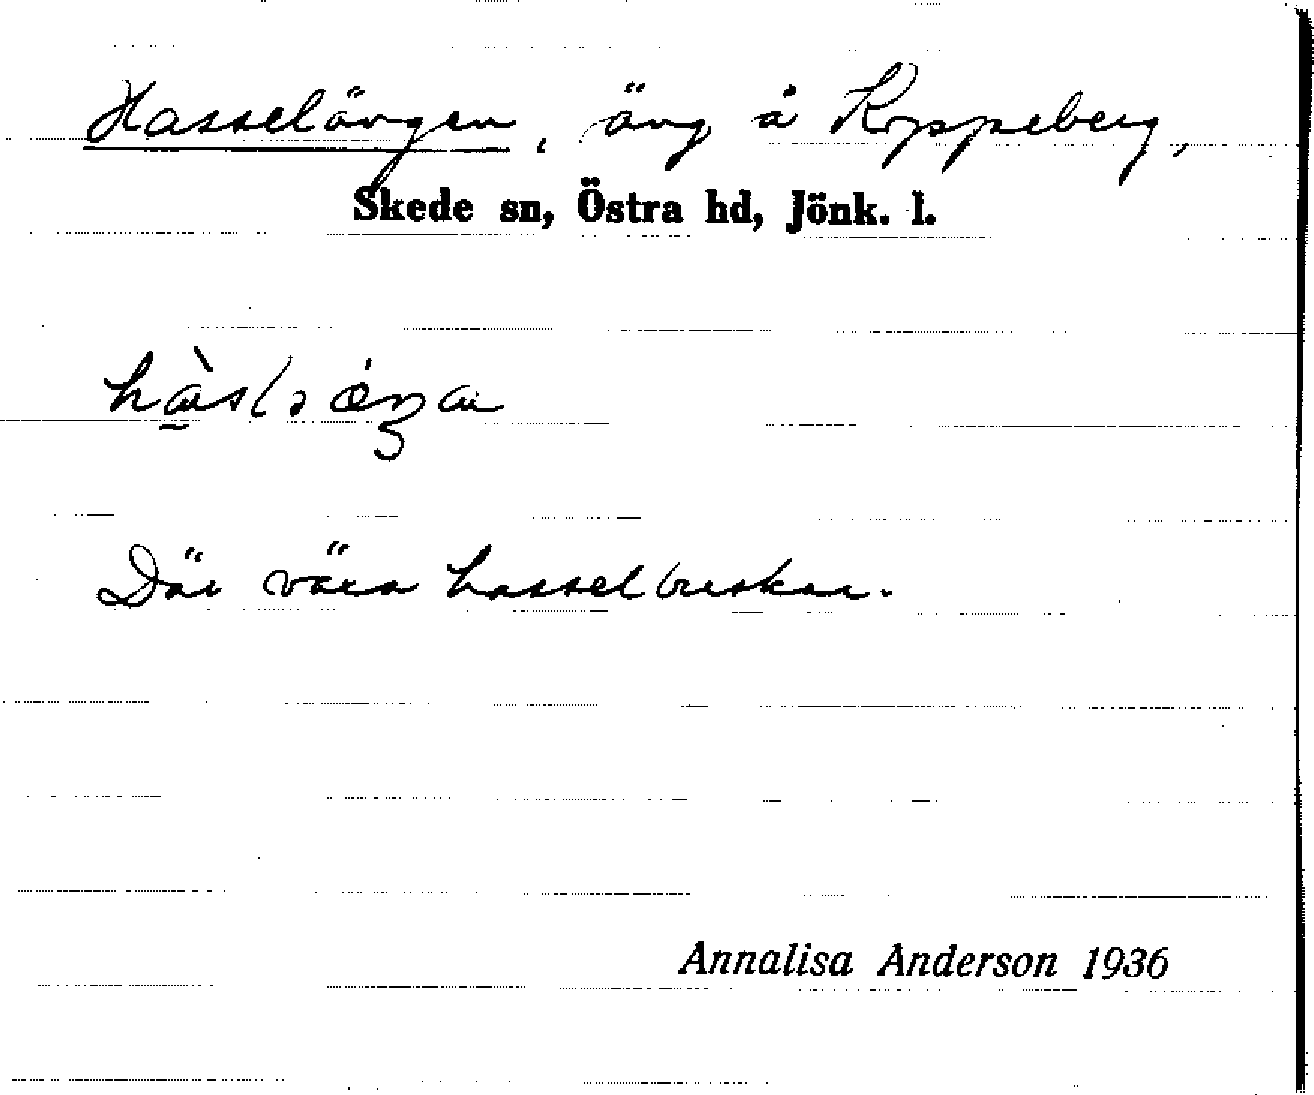 Hasselängen, äng å Koppeberg,
Skede sn, Östra hd, Jönk. l.
Där växa hasselbuskar.
Annalisa Anderson 1936